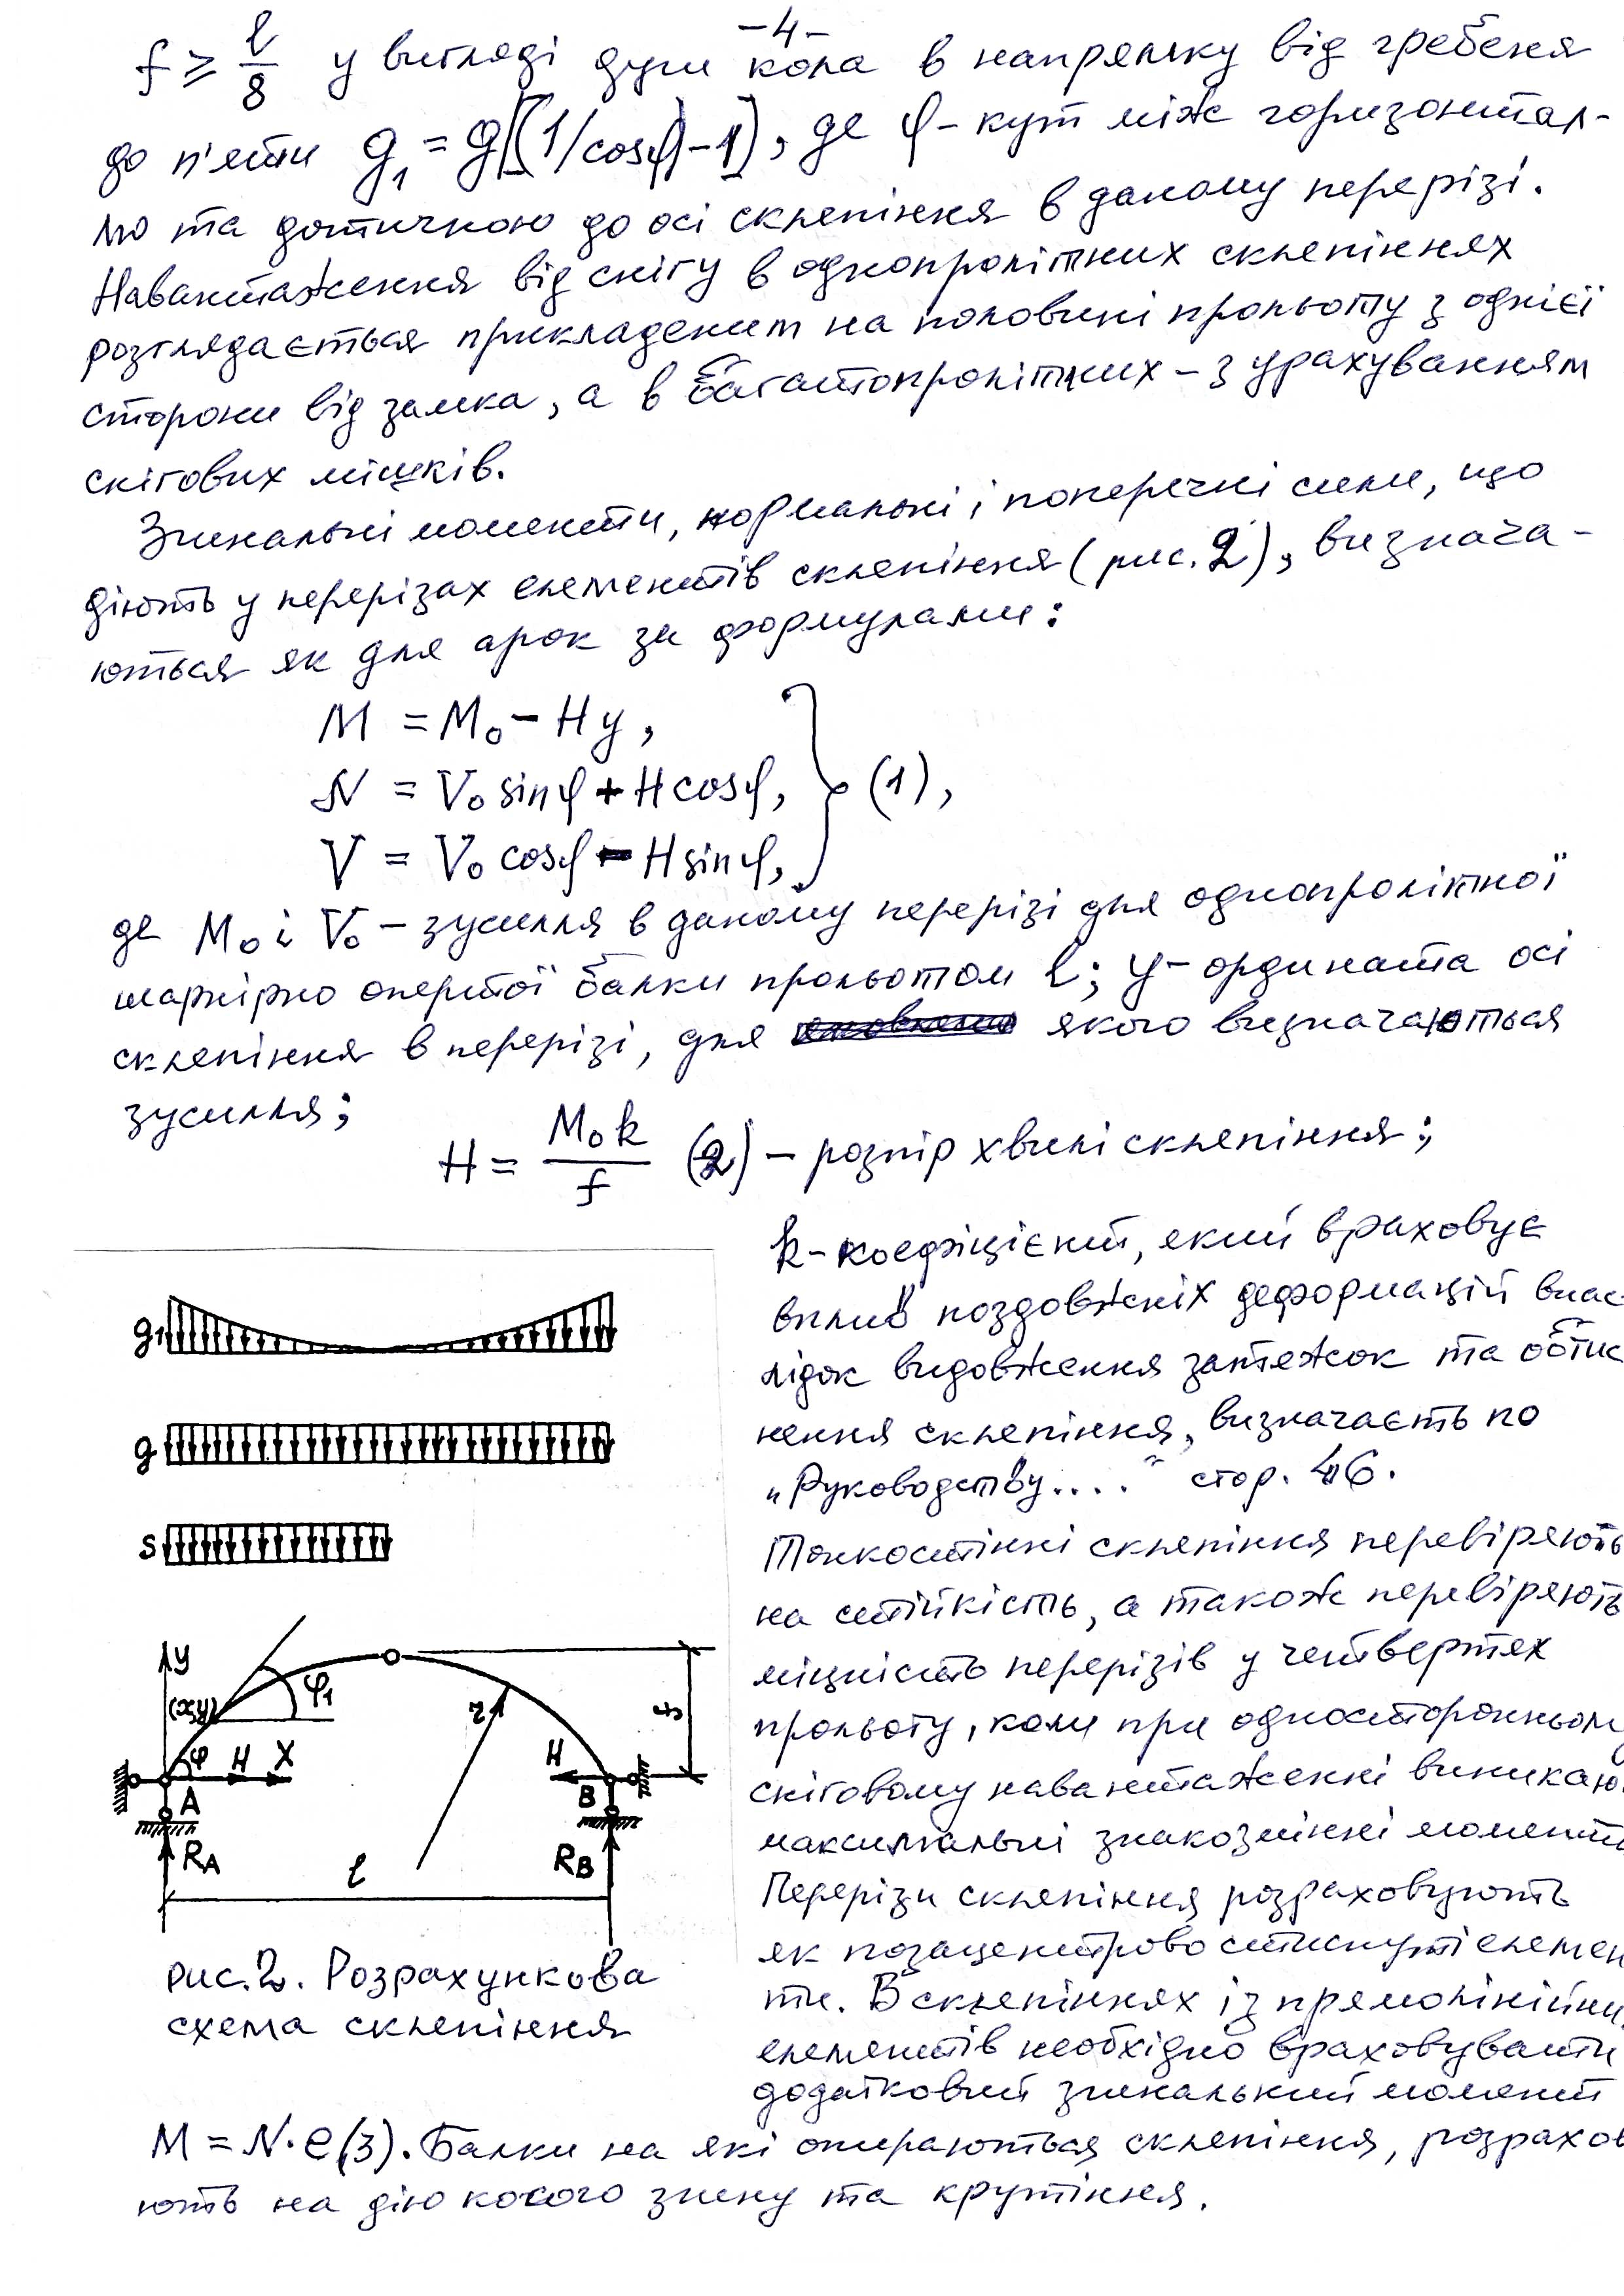 -4-
f ≥ l/8 у вигляді дуги кола в напрямку від гребеня
до п'яти g₁ = g[(1/cosφ)-1], де φ- кут між горизонтал-
лю та дотичною до осі склепіння в даному перерізі.
Навантаження від снігу в однопролітних склепіннях
розглядається прикладеним на половині прольоту з однієї
сторони від замка, а в багатопролітних - з урахуванням
снігових мішків.
Згинальні моменти, нормальні і поперечні сили, що
діють у перерізах елементів склепіння (рис. 2), визнача-
ються як для арок за формулами:
M = M₀ - Hy,
N = V₀ sinφ + H cosφ, } (1),
V = V₀ cosφ - H sinφ,
де M₀ і V₀ - зусилля в даному перерізі для однопролітної
шарнірно опертої балки прольотом l; y- ордината осі
склепіння в перерізі, для якого визначаються
зусилля;
H = M₀k/f (2) - розпір хвилі склепіння;
k- коефіцієнт, який враховує
вплив поздовжніх деформацій внас-
лідок видовження затяжок та обтис
нення склепіння, визначаєть по
„Руководству...." стор. 46.
Тонкостінні склепіння перевіряють
на стійкість, а також перевіряють
міцність перерізів у четвертях
прольоту, коли при односторонньому
сніговому навантаженні виникаю
максимальні знакозмінні моменти
Перерізи склепіння розраховують
як позацентрово стиснуті елемен
ти. В склепіннях із прямолінійни
елементів необхідно враховувати
додатковий згинальний момент
g₁
g
s
y
(xy)
φ₁
r
f
φ
H
X
H
A
B
R_A
l
R_B
рис.2. Розрахункова
схема склепіння
M = N·e (3). Балки на які опираються склепіння, розрахов
ють на дію косого згину та крутіння.